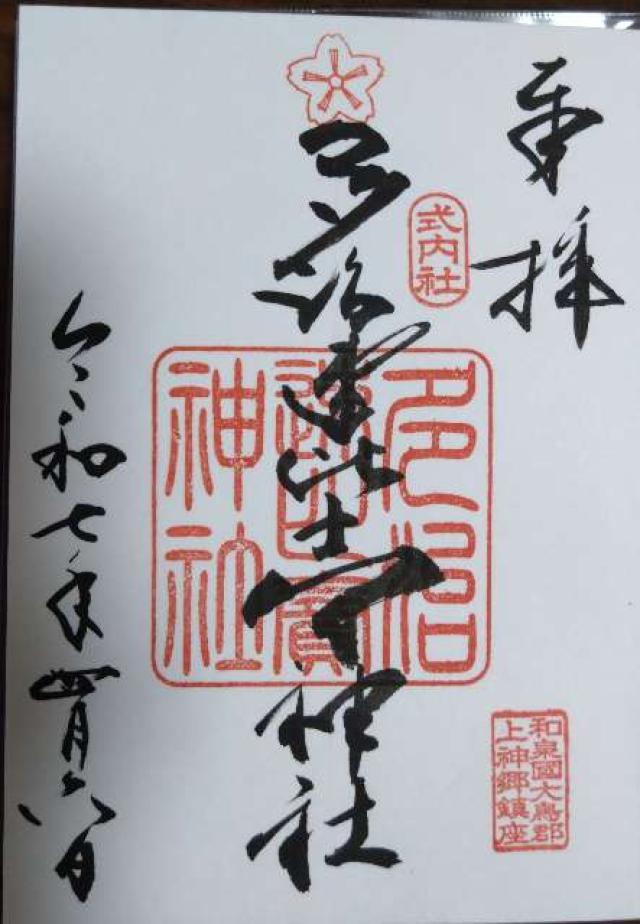 奉拝
式内社
多治速比売神社
多治
速比賣
神社
和泉國大鳥郡
上神郷鎮座
令和七年四月六日